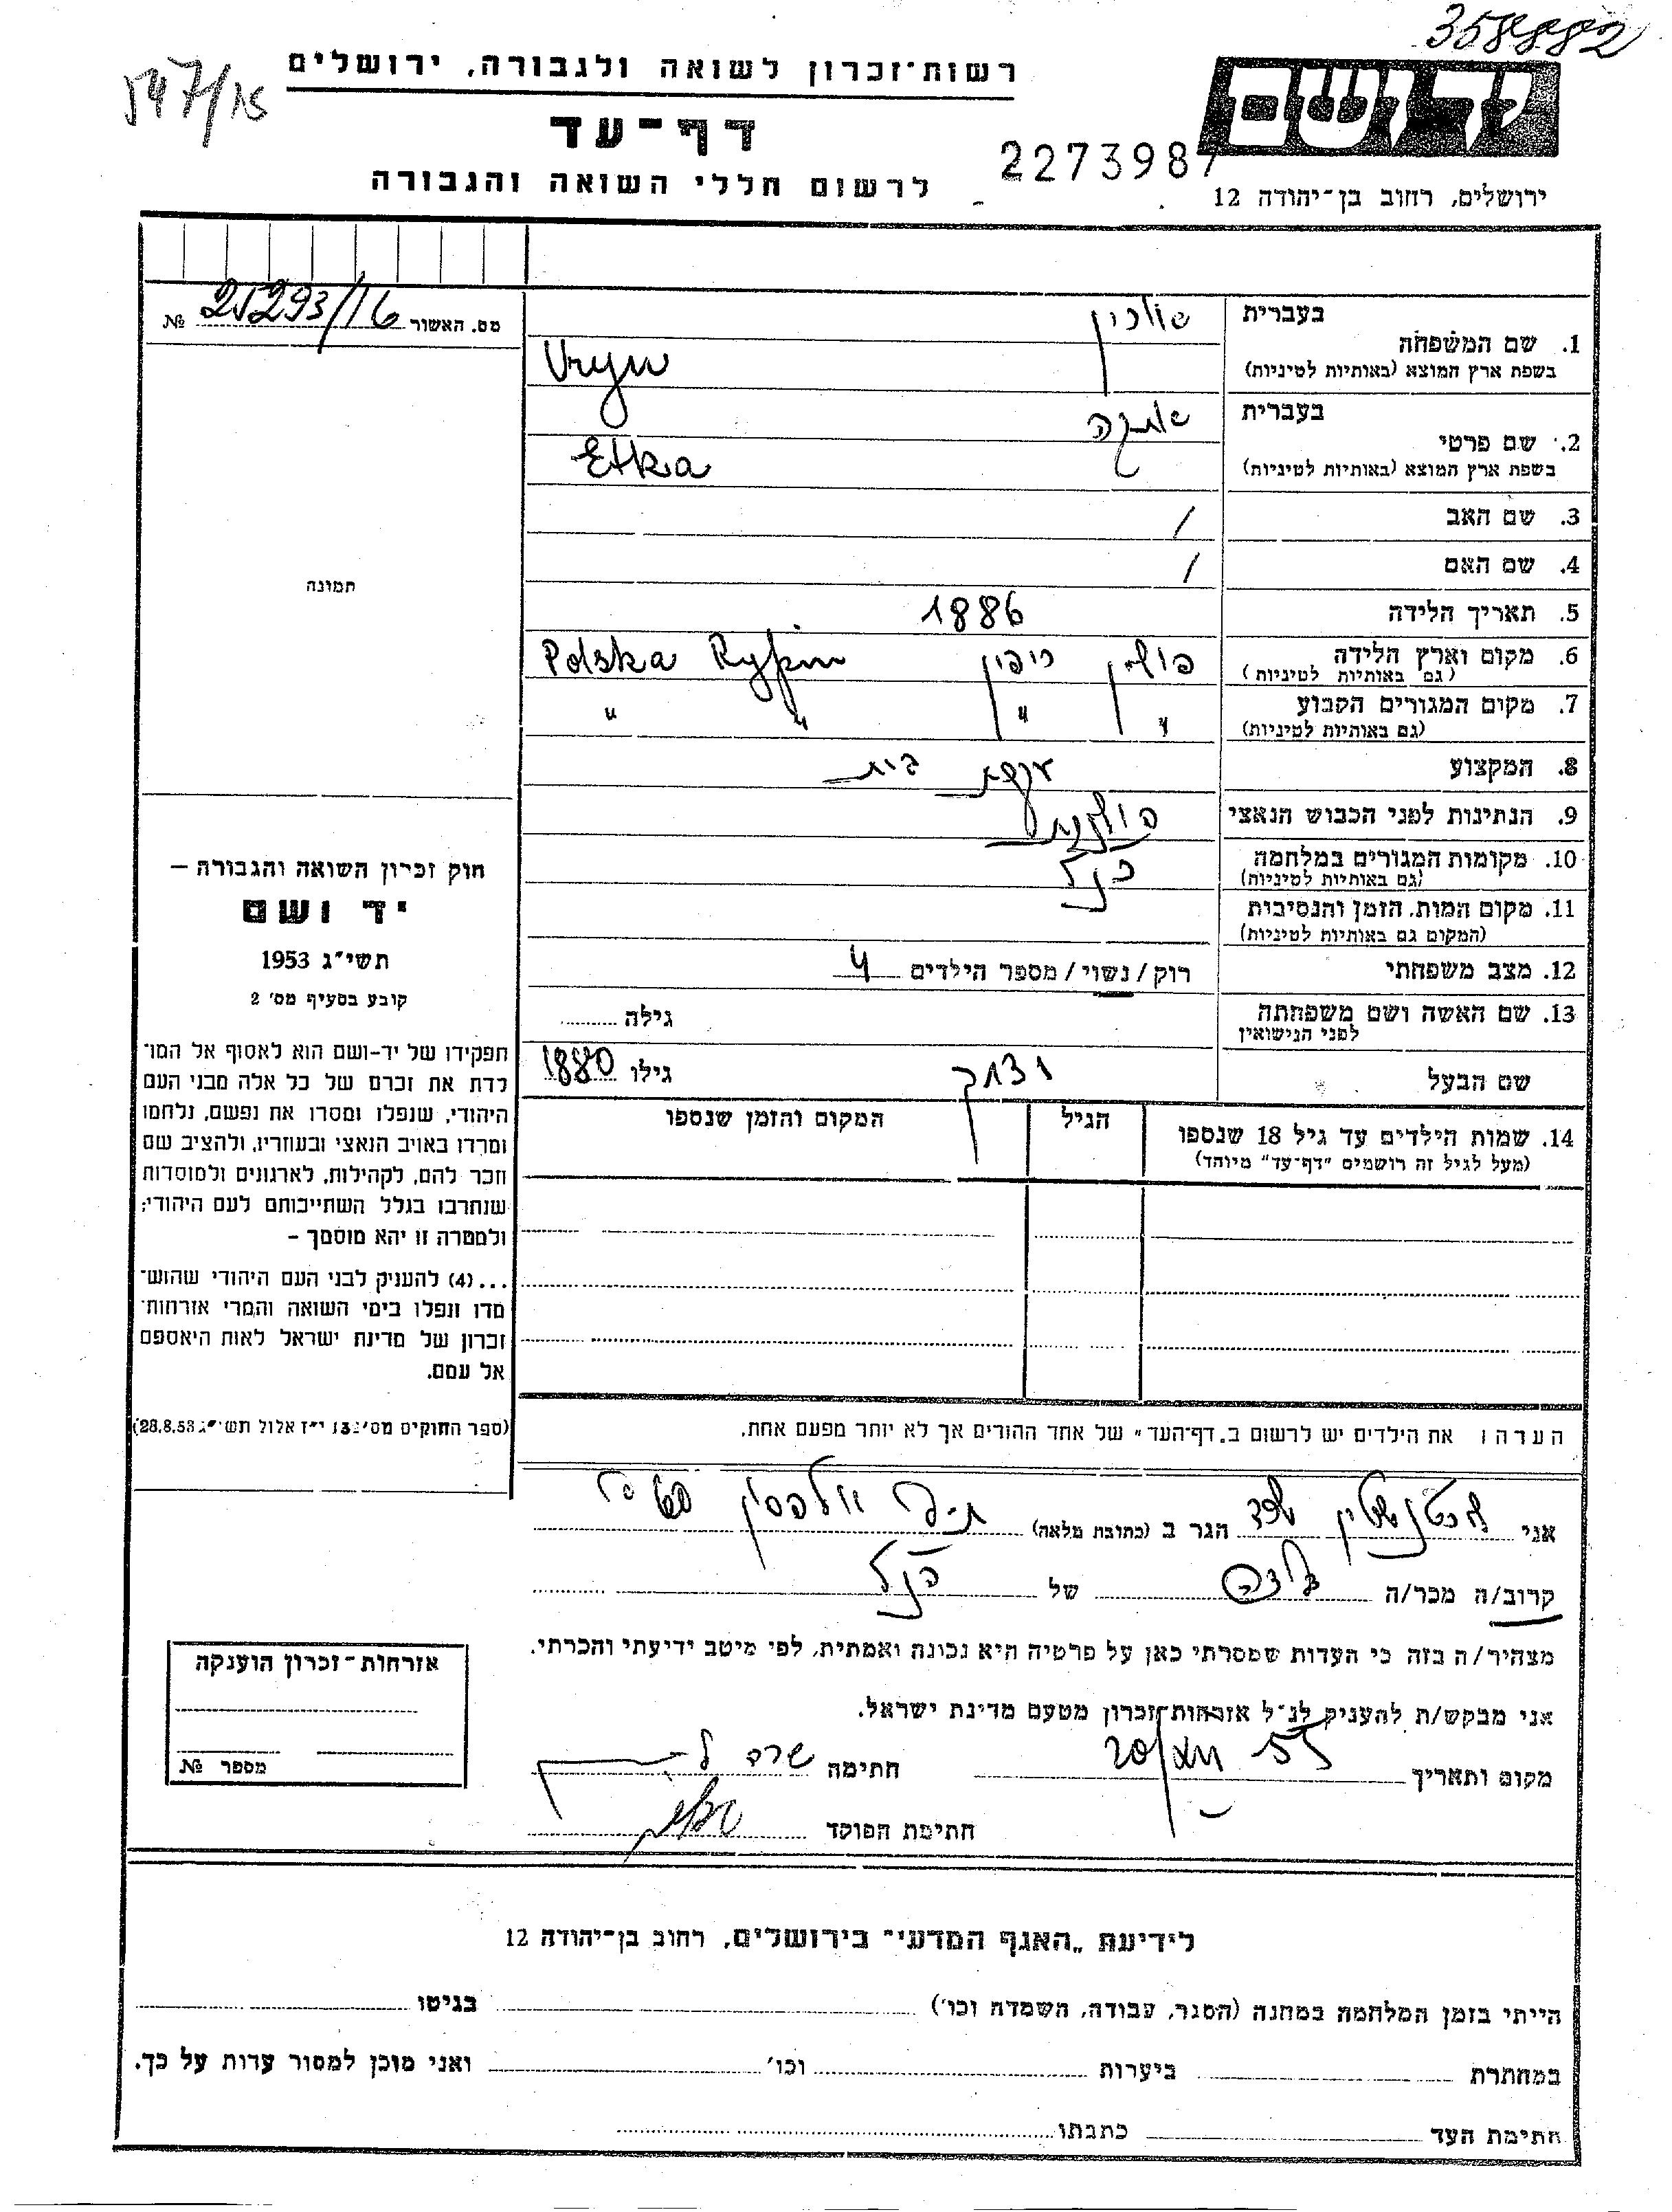 358882
547/15
רשות־זכרון לשואה ולגבורה, ירושלים
ידושם
דף־עד
2273987
לרשום חללי השואה והגבורה
ירושלים, רחוב בן־יהודה 12
מס. האשור 25293/16 №
בעברית
1. שם המשפחה
בשפת ארץ המוצא (באותיות לטיניות) Uryn
בעברית
2. שם פרטי
בשפת ארץ המוצא (באותיות לטיניות) Etka
3. שם האב /
4. שם האם /
5. תאריך הלידה 1886
6. מקום וארץ הלידה פולין ריפין Polska Rypin
(גם באותיות לטיניות)
7. מקום המגורים הקבוע " " " "
(גם באותיות לטיניות)
8. המקצוע עקרת בית
9. הנתינות לפני הכבוש הנאצי פולנית
10. מקומות המגורים במלחמה כנ"ל
(גם באותיות לטיניות)
11. מקום המות, הזמן והנסיבות
(המקום גם באותיות לטיניות)
12. מצב משפחתי רוק / נשוי / מספר הילדים 4
13. שם האשה ושם משפחתה גילה
לפני הנישואין
שם הבעל יצחק גילו 1880
14. שמות הילדים עד גיל 18 שנספו הגיל המקום והזמן שנספו
(מעל לגיל זה רושמים "דף־עד" מיוחד)
הערה: את הילדים יש לרשום ב„דף־העד" של אחד ההורים אך לא יותר מפעם אחת.
תמונה
חוק זכרון השואה והגבורה –
יד ושם
תשי"ג 1953
קובע בסעיף מס' 2
תפקידו של יד־ושם הוא לאסוף אל המו־
לדת את זכרם של כל אלה מבני העם
היהודי, שנפלו ומסרו את נפשם, נלחמו
ומרדו באויב הנאצי ובעוזריו, ולהציב שם
וזכר להם, לקהילות, לארגונים ולמוסדות
שנחרבו בגלל השתייכותם לעם היהודי;
ולמטרה זו יהא מוסמך –
...(4) להעניק לבני העם היהודי שהוש־
מדו ונפלו בימי השואה והמרי אזרחות־
זכרון של מדינת ישראל לאות היאספם
אל עמם.
(ספר החוקים מס' 132 י"ז אלול תשי"ג 28.8.53)
אני הגר ב (כתובת מלאה)
קרוב/ה מכר/ה של הנ"ל
מצהיר/ה בזה כי העדות שמסרתי כאן על פרטיה היא נכונה ואמתית, לפי מיטב ידיעתי והכרתי.
אני מבקש/ת להעניק לנ"ל אזרחות־זכרון מטעם מדינת ישראל.
מקום ותאריך חתימה
חתימת הפוקד
אזרחות־זכרון הוענקה
מספר №
לידיעת „האגף המדעי" בירושלים, רחוב בן־יהודה 12
הייתי בזמן המלחמה במחנה (הסגר, עבודה, השמדה וכו') בגיטו
במחתרת ביערות וכו' ואני מוכן למסור עדות על כך.
חתימת העד כתבתו